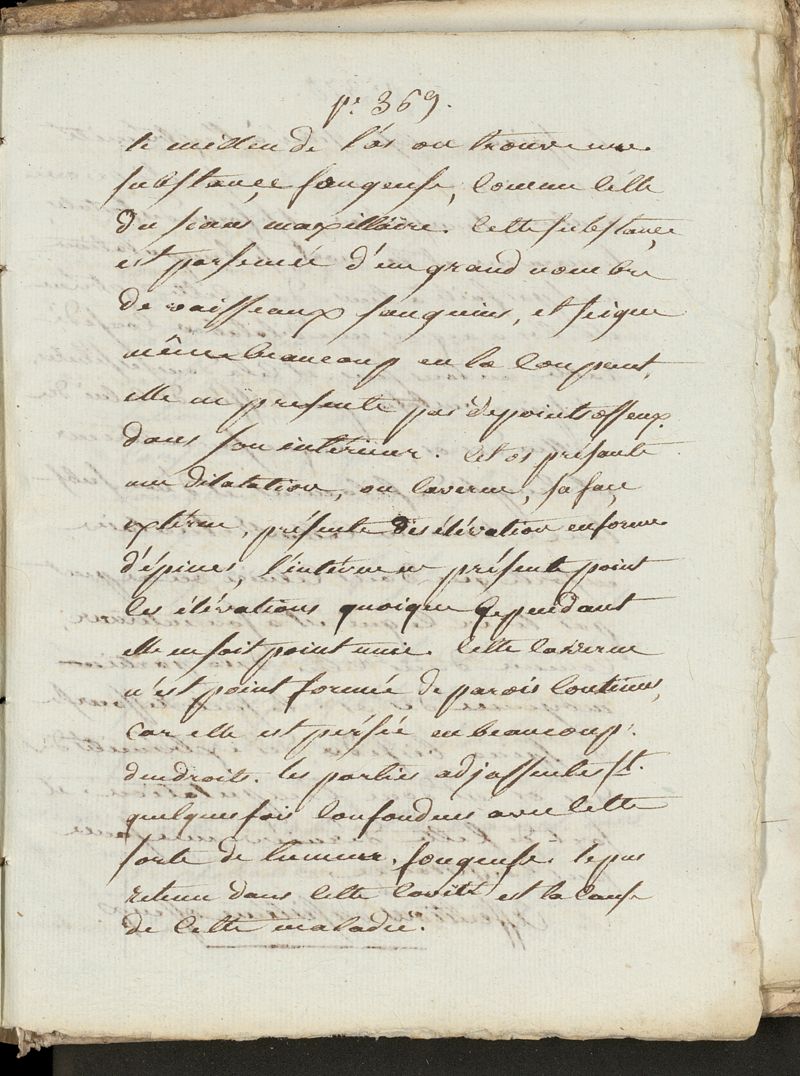 pr. 369.
le milieu de l'os on trouve une
substance, fongeuse, comme celle
du sinus maxillaire. Cette substance
est parsemée d'un grand nombre
de vaisseaux sanguins, et seigne
même beaucoup en la coupent,
elle ne presente pas de points osseux
dans son intérieur. Cet os présente
une dilatation, ou caverne, sa face
extèrne, présente des élévation en forme
d'épines, l'intérne ne présente point
les élévations quoique cependant
elle ne soit point unie. Cette caverne
n'est point formée de parois continues,
car elle est pérsée en beaucoup
dendroits. les parties adjassentes st.
quelques fois confondues avec cette
sorte de tumeur, fongeuse. le pus
retenu dans cette cavité est la cause
de cette maladie.